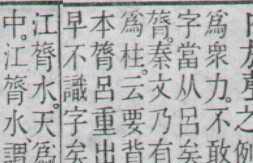 章之例
爲衆力。不敢
字當从呂矣
膂。秦文乃有
爲柱。云要背
本膂呂重出
早不識字矣
江膂水。天爲
中。江膂水謂